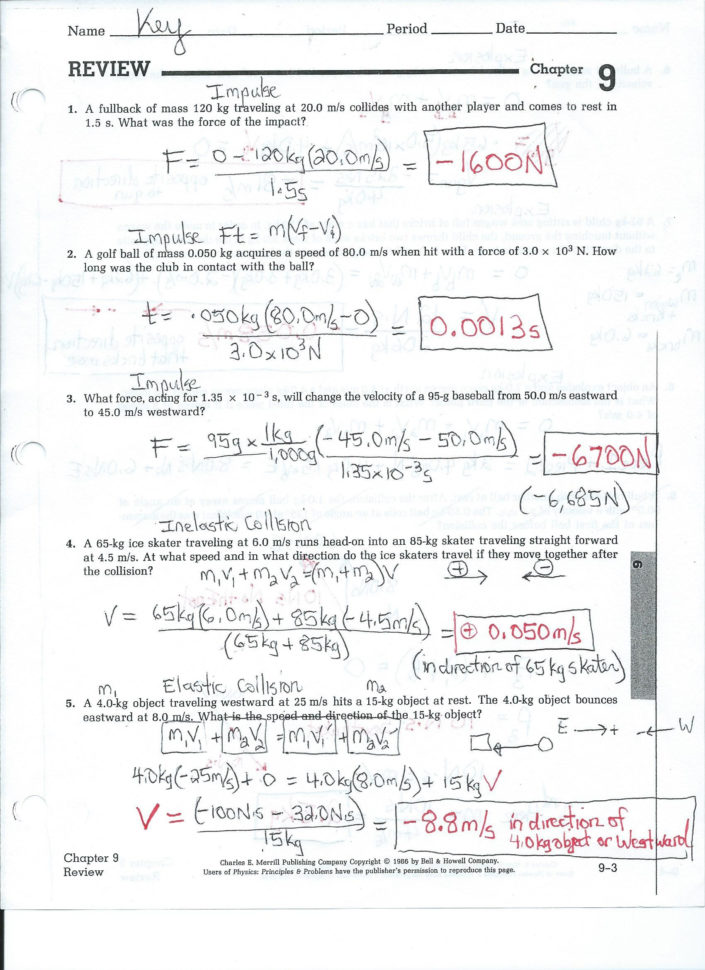 Name Key Period Date
REVIEW Chapter 9
Impulse
1. A fullback of mass 120 kg traveling at 20.0 m/s collides with another player and comes to rest in
1.5 s. What was the force of the impact?
F = 0 - 120kg(20.0m/s) / 1.5s = -1600N
Impulse Ft = m(Vf-Vi)
2. A golf ball of mass 0.050 kg acquires a speed of 80.0 m/s when hit with a force of 3.0 × 10³ N. How
long was the club in contact with the ball?
t = .050kg(80.0m/s-0) / 3.0x10³N = 0.0013s
Impulse
3. What force, acting for 1.35 × 10⁻³ s, will change the velocity of a 95-g baseball from 50.0 m/s eastward
to 45.0 m/s westward?
F = 95g x 1kg/1,000g (-45.0m/s - 50.0m/s) / 1.35x10⁻³s = -6700N
(-6,685N)
Inelastic Collision
4. A 65-kg ice skater traveling at 6.0 m/s runs head-on into an 85-kg skater traveling straight forward
at 4.5 m/s. At what speed and in what direction do the ice skaters travel if they move together after
the collision? m₁V₁ + m₂V₂ = (m₁+m₂)V + → ← -
V = 65kg(6.0m/s) + 85kg(-4.5m/s) / (65kg + 85kg) = + 0.050m/s
(in direction of 65kg skater)
m₁ Elastic Collision m₂
5. A 4.0-kg object traveling westward at 25 m/s hits a 15-kg object at rest. The 4.0-kg object bounces
eastward at 8.0 m/s. What is the speed and direction of the 15-kg object?
m₁V₁ + m₂V₂ = m₁V₁' + m₂V₂' E → + - ← W
4.0kg(-25m/s) + 0 = 4.0kg(8.0m/s) + 15kg V
V = (-100N·s - 32.0N·s) / 15kg = -8.8m/s in direction of
4.0kg object or Westward
Chapter 9
Review
Charles E. Merrill Publishing Company Copyright © 1986 by Bell & Howell Company.
Users of Physics: Principles & Problems have the publisher's permission to reproduce this page.
9-3
9